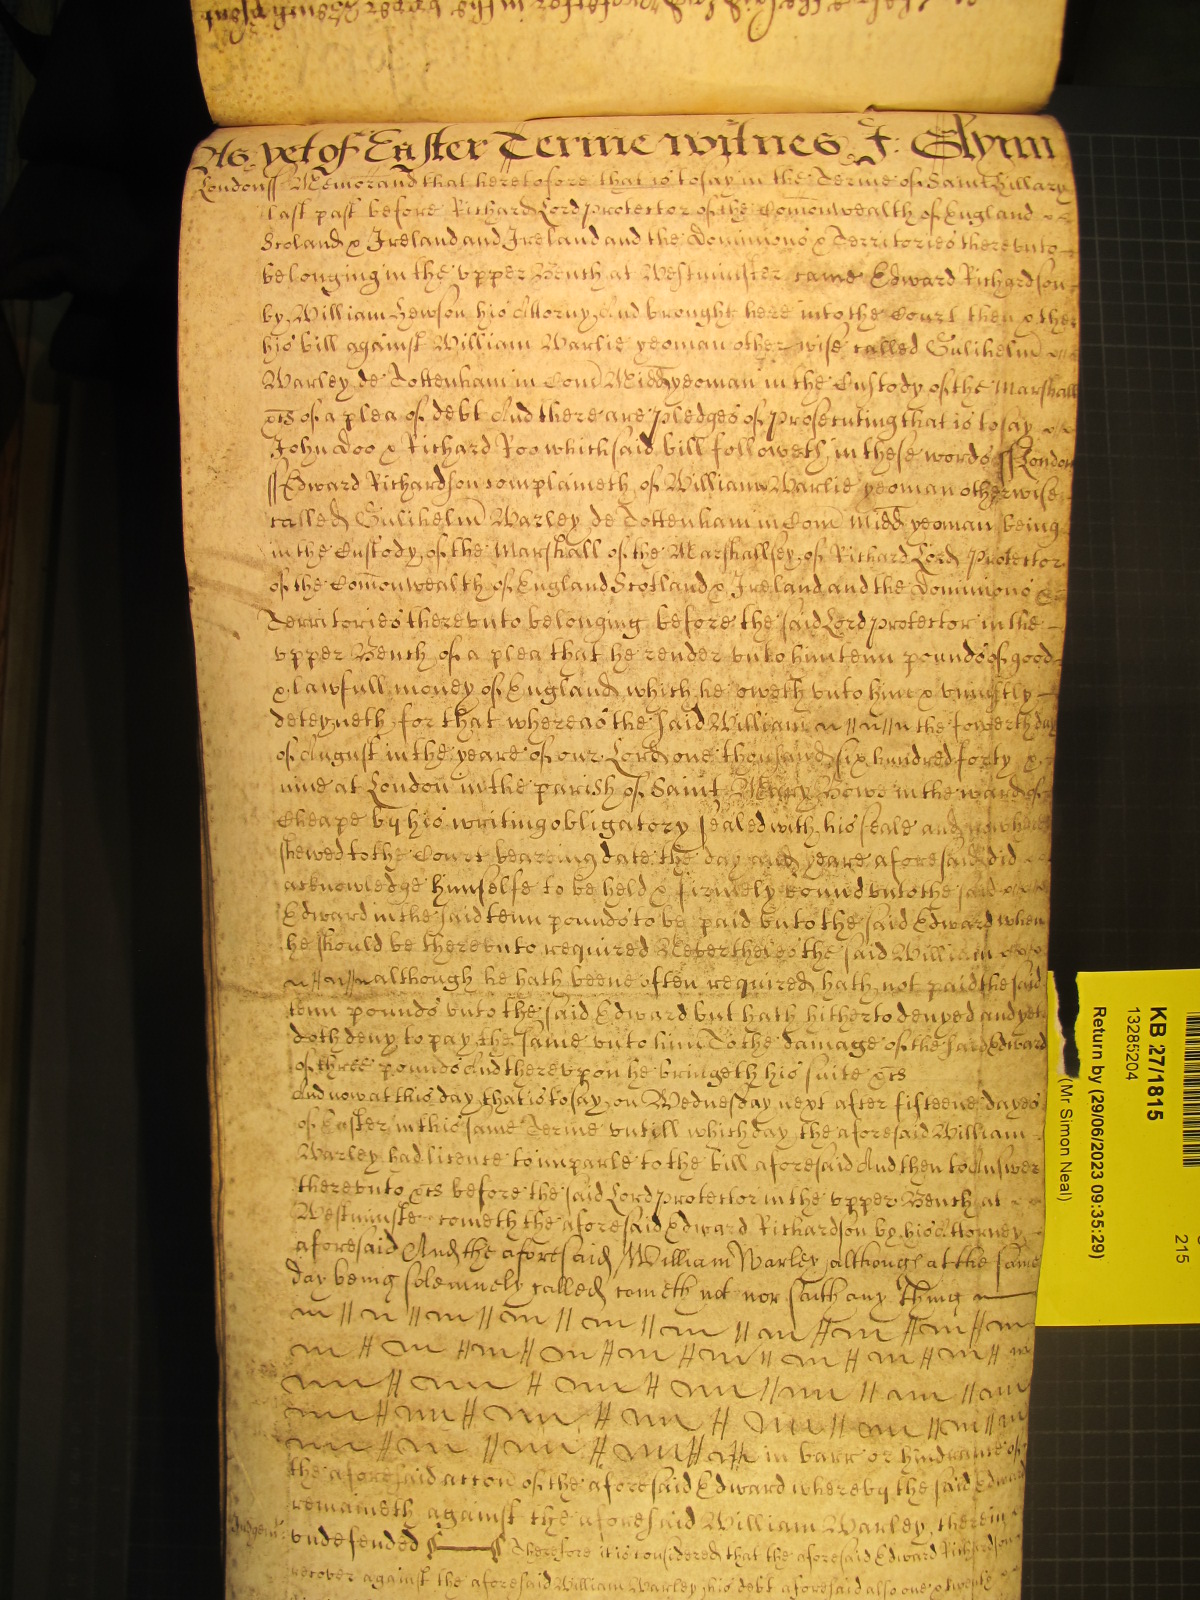 the said Lord protector in the upper Bench
As yet of Easter Terme witnes J: Glynn
London ss Memorand that heretofore that is to say in the Terme of Saint Hillary
last past before Richard Lord protector of the Com̄onwealth of England
Scoland & Ireland and Ireland and the Dominions & Territories thereunto
belonging in the upper Bench at Westminster came Edward Richardson
by William Hewson his Attorny And brought here into the Court then & ther
his bill against William Warlie yeoman otherwise called Gulihelm̄
Warley de Tottenham in Com̄ Midd yeoman in the Custody of the Marshall
&c of a plea of debt And there are pledges of prosecuting that is to say
John Doo & Richard Roo which said bill followeth in these words ss London
ss Edward Richardson complaineth of William Warlie yeoman otherwise
called Gulihelm̄ Warley de Tottenham in Com̄ Midd yeoman being
in the Custody of the Marshall of the Marshallsey of Richard Lord Protector
of the Com̄onwealth of England Scotland & Ireland and the Dominions &
Territories thereunto belonging before the said Lord protector in the
upper Bench of a plea that he render unto him tenn pounds of good
& lawfull money of England which he oweth unto him & uniustly
deteyneth for that whereas the said William the fowerth day
of August in the yeare of our Lord one thousand six hundred forty &
nine at London in the parish of Saint Mary Bowe in the ward of
Cheape by his writing obligatory sealed with his seale and now here
shewed to the Court bearing date the day and yeare aforesaid did
acknowledge himselfe to be held & firmely bound unto the said
Edward in the said tenn pounds to be paid unto the said Edward when
he should be thereunto required Neverthelesse the said William
although he hath beene often required hath not paid the said
tenn pounds unto the said Edward but hath hitherto denyed and yet
doth deny to pay the same unto him To the damage of the said Edward
of three pounds And thereupon he bringeth his suite &c
And now at this day that is to say on Wednesday next after fifteene dayes
of Easter in this same Terme untill which day the aforesaid William
Warley had licence to imparle to the bill aforesaid And then to Answer
thereunto &c before the said Lord protector in the upper Bench at
Westminster cometh the aforesaid Edward Richardson by his Attorney
aforesaid And the aforesaid William Warley although at the same
day being solemnely called cometh not nor saith any thing
in barr or hindrance of
the aforesaid accon of the aforesaid Edward whereby the said Edward
remaineth against the aforesaid William Warley therein
undefended Therefore it is considered that the aforesaid Edward Richardson
recover against the aforesaid William Warley his debt aforesaid also one & twenty
KB 27/1815
13285204
Return by (29/06/2023 09:35:29)
(Mr Simon Neal)
215